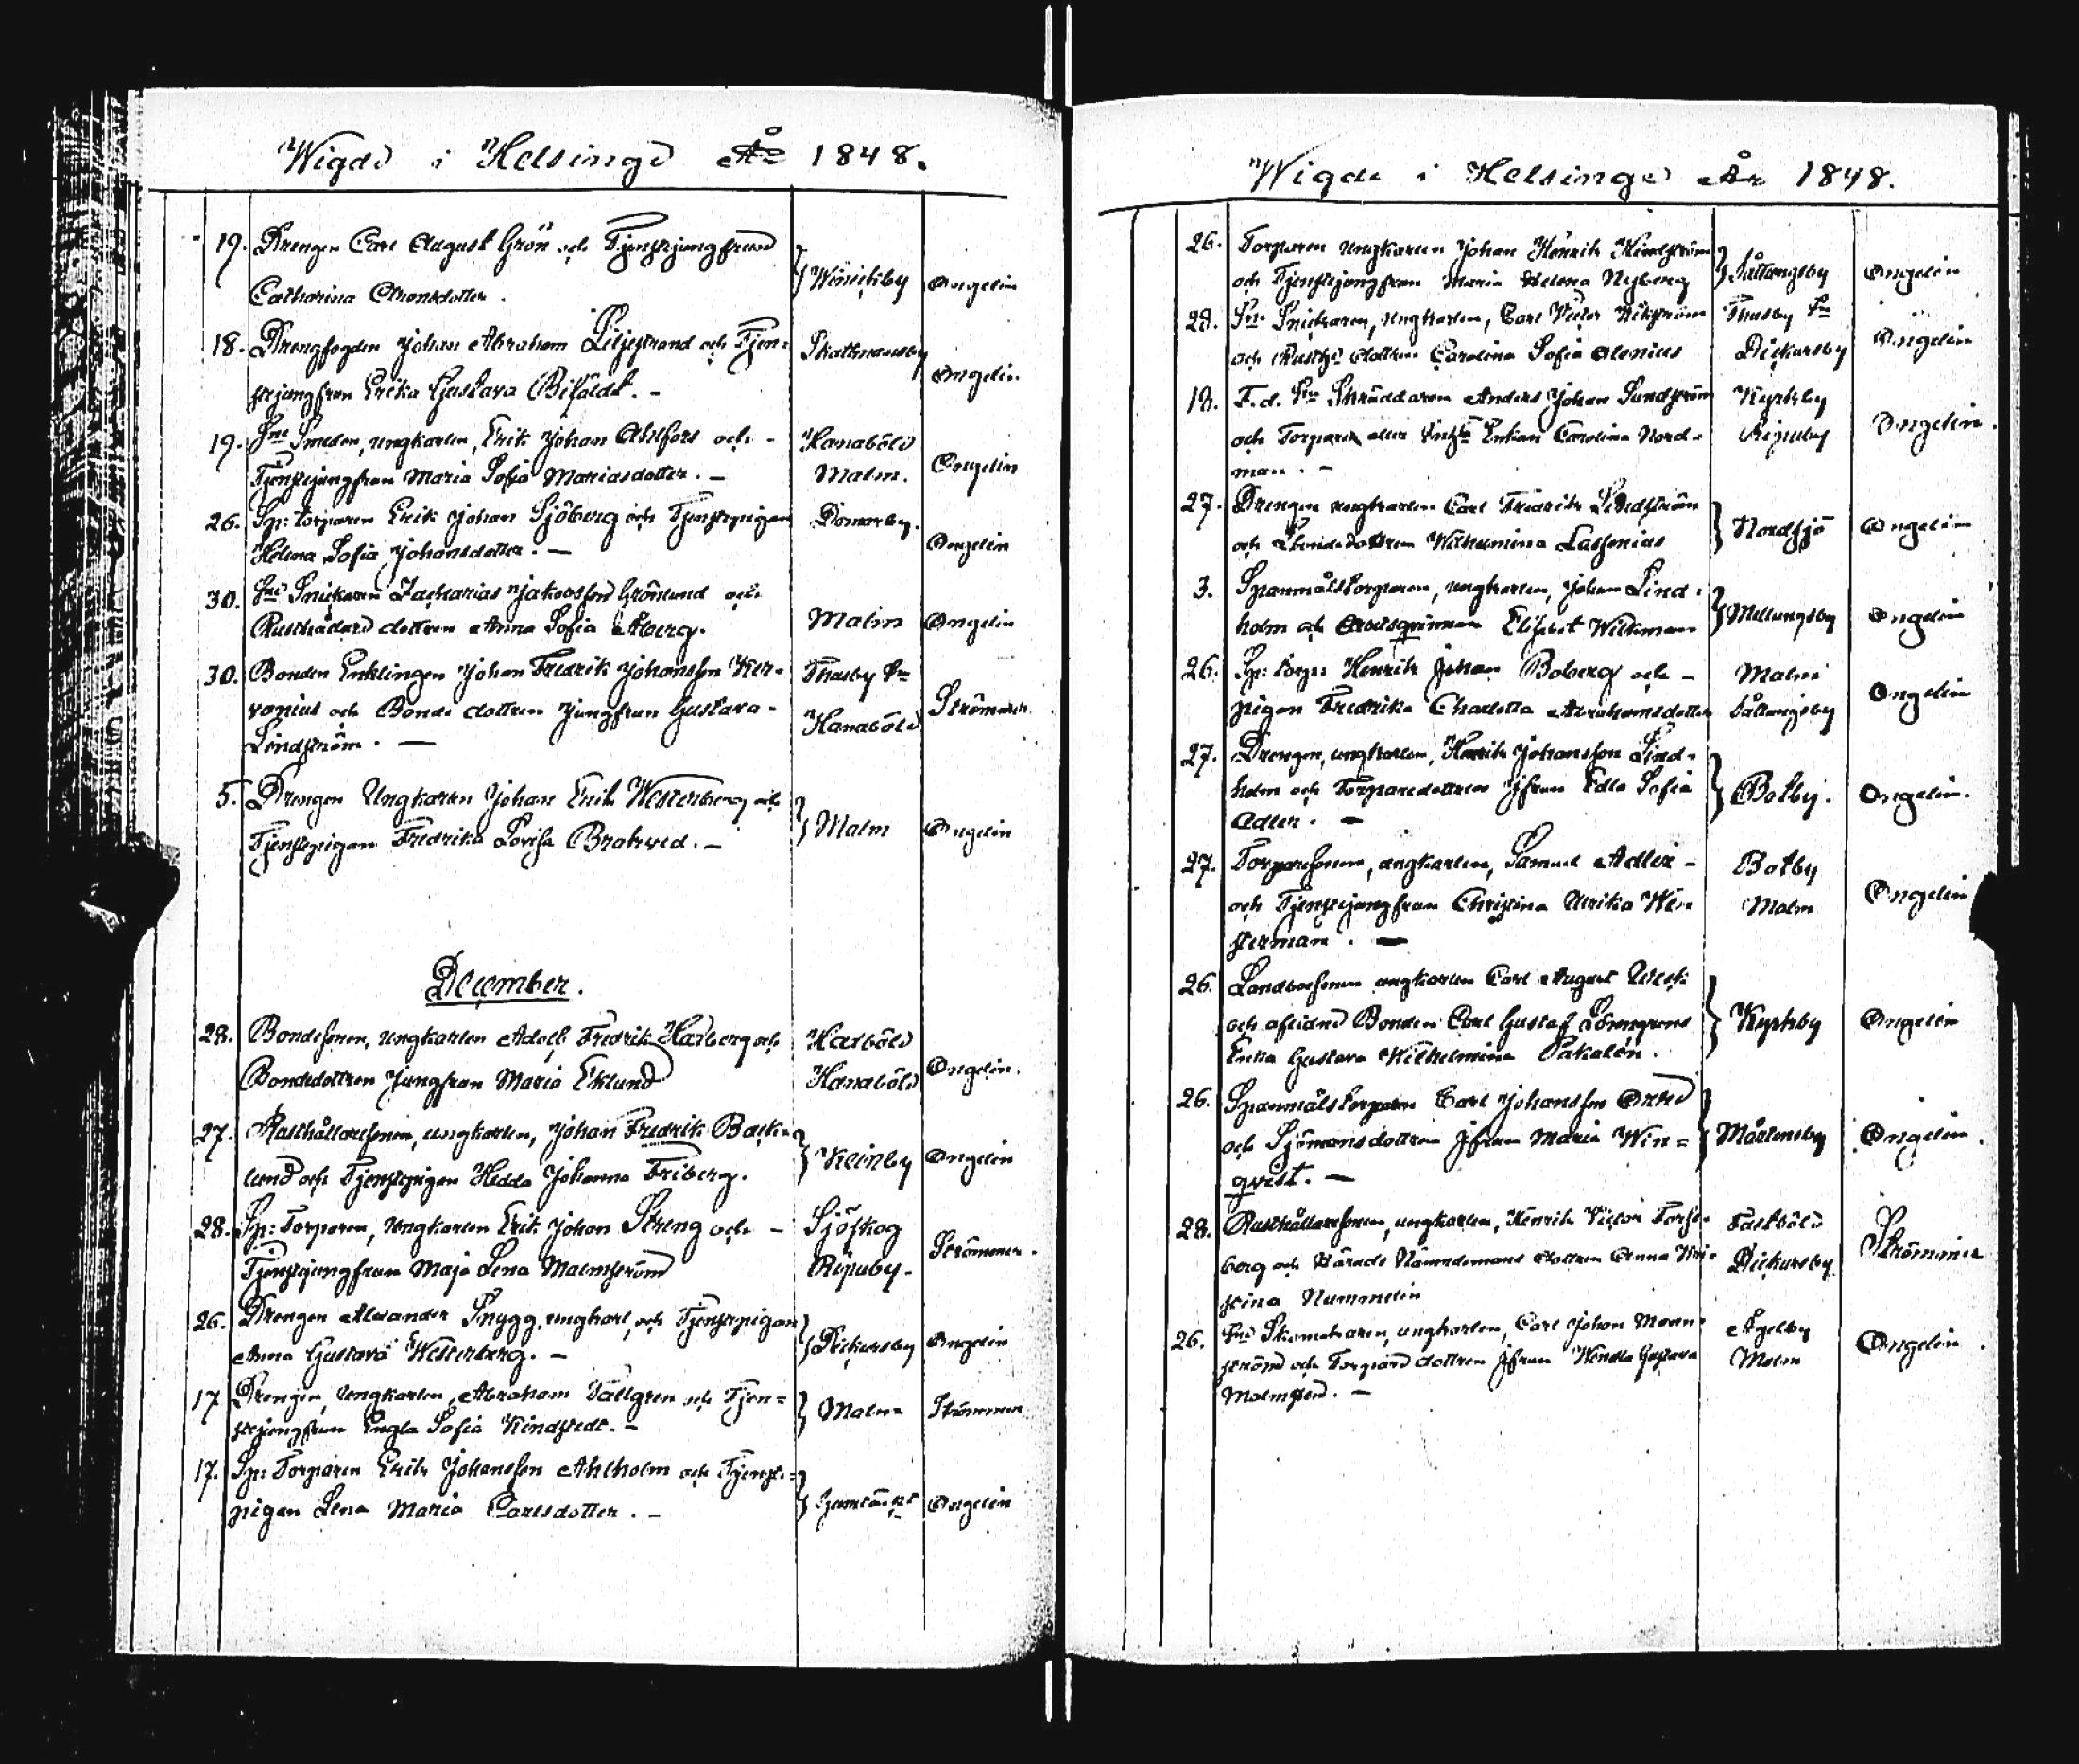 Wigde i Helsinge År 1848.
19. Drengen Carl August Grön och Tjenstejungfrun
Catharina Aronsdotter.
Wänichby Ongelin
18. Drengfogden Johan Abraham Liljestrand och Tjen=
stejungfrun Erika Gustava Bifäldt. -
Skattmansby Ongelin
19. Sne Smeden, ungkarlen, Erik Johan Ahlfors och -
Tjenstejungfrun Maria Sofia Mariasdotter. -
Hanaböle
Malm. Ongelin
26. Sp: torparen Erik Johan Sjöberg och Tjenstepigan
Helena Sofia Johansdotter. -
Domarby. Ongelin
30. Sne Snickaren Zacharias Jakobsson Grönlund och
Rusthållare dottren Anna Sofia Åberg.
Malm Ongelin
30. Bonden Enklingen Johan Fredrik Johansson Her=
vonius och Bonde dottren Jungfrun Gustava -
Lindström. -
Thusby Sn
Hanaböle Strömmer.
5. Drengen Ungkarlen Johan Erik Westerberg och
Tjenstepigan Fredrika Lovisa Brahved. -
Malm Ongelin
December.
28. Bondesonen, ungkarlen Adolf Fredrik Haxberg och
Bondedottren Jungfrun Maria Eklund
Haxböle
Hanaböle Ongelin.
27. Rusthållaresonen, ungkarlen, Johan Fredrik Back=
lund och Tjenstepigan Hedda Johanna Friberg.
Keinby Ongelin
28. Sp: Torparen, ungkarlen Erik Johan Streng och -
Tjenstejungfrun Maja Lena Malmström
Sjöskog
Ripuby. Strömmer.
26. Drengen Alexander Snygg, ungkarl, och Tjenstepigan
Anna Gustava Westerberg. -
Dickursby Ongelin
17 Drengen, ungkarlen, Abraham Tallgren och Tjen=
stejungfrun Engla Sofia Kindstedt. -
Malm Strömmer
17. Sp: Torparen Erik Johansson Ahlholm och Tjenste=
pigan Lena Maria Carlsdotter. -
Ongelin
Wigde i Helsinge År 1848.
26. Torparen ungkarlen Johan Henrik Kindström
och Tjenstejungfrun Maria Helena Nyberg
Båttengsby Ongelin
28. Sne Snickaren, ungkarlen, Carl Victor Wikström
och Rusth: dottren Carolina Sofia Alenius
Thusby Sn
Dickursby Ongelin
18. F.d. Sne Skräddaren Anders Johan Sundström
och Torpare Enkan Carolina Nord=
man. -
Kyrkby
Ripuby Ongelin.
27. Drengen ungkarlen Carl Fredrik Lindström
och Bondedottren Wilhelmina Lassenius
Nordsjö Ongelin
3. Spanmålstorparen, ungkarlen, Johan Lind=
holm och Arbetsqvinnan Elisabet Wickman
Mellungsby Ongelin
26. Sp: torp: Henrik Johan Boberg och -
pigan Fredrika Charlotta Abrahamsdotter
Malm
Båttengsby Ongelin
27. Drengen, ungkarlen, Henrik Johansson Lind=
holm och Torparedottren Jfrun Edla Sofia
Adler. -
Botby. Ongelin.
27. Torparesonen, ungkarlen, Samuel Adler -
och Tjenstejungfrun Christina Ulrika Wen=
sterman. -
Botby
Malm Ongelin
26. Landbosonen ungkarlen Carl August
och aflidne Bonden Carl Gustaf Lönngrens
Enka Gustava Wilhelmina Pakalén.
Kyrkby Ongelin
26. Spanmålstorparen Carl Johansson
och Sjömansdottren Jfrun Maria Win=
qvist. -
Mårtensby Ongelin.
28. Rusthållaresonen, ungkarlen, Henrik Victor Forss=
berg och Härads Nämndemans dottren Anna Kri=
stina Nummelin
Fastböle
Dickursby Strömmer
26. Sne Skomakaren, ungkarlen, Carl Johan Malm=
ström och Torpare dottren Jfrun Wendla Gustava
Malmsten. -
Ågelby
Malm Ongelin.